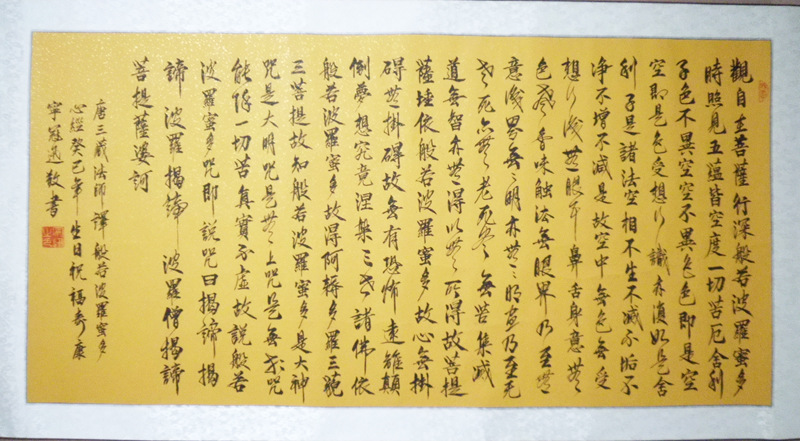 觀自在菩薩行深般若波羅蜜多
時照見五蘊皆空度一切苦厄舍利
子色不異空空不異色色即是空
空即是色受想行識亦復如是舍
利子是諸法空相不生不滅不垢不
净不增不减是故空中無色無受
想行識無眼耳鼻舌身意無
色聲香味触法無眼界乃至無
意識界無無明亦無無明盡乃至無
老死亦無老死盡無苦集滅
道無智亦無得以無所得故菩提
薩埵依般若波羅蜜多故心無掛
碍無掛碍故無有恐怖遠離顛
倒夢想究竟涅槃三世諸佛依
般若波羅蜜多故得阿耨多羅三藐
三菩提故知般若波羅蜜多是大神
咒是大明咒是無上咒是無等咒
能除一切苦真實不虛故説般若
波羅蜜多咒即説咒曰揭諦揭
諦波羅揭諦波羅僧揭諦
菩提薩婆訶
唐三藏法師譯般若波羅蜜多
心經癸巳年生日祝福壽康
寧冠通敬書